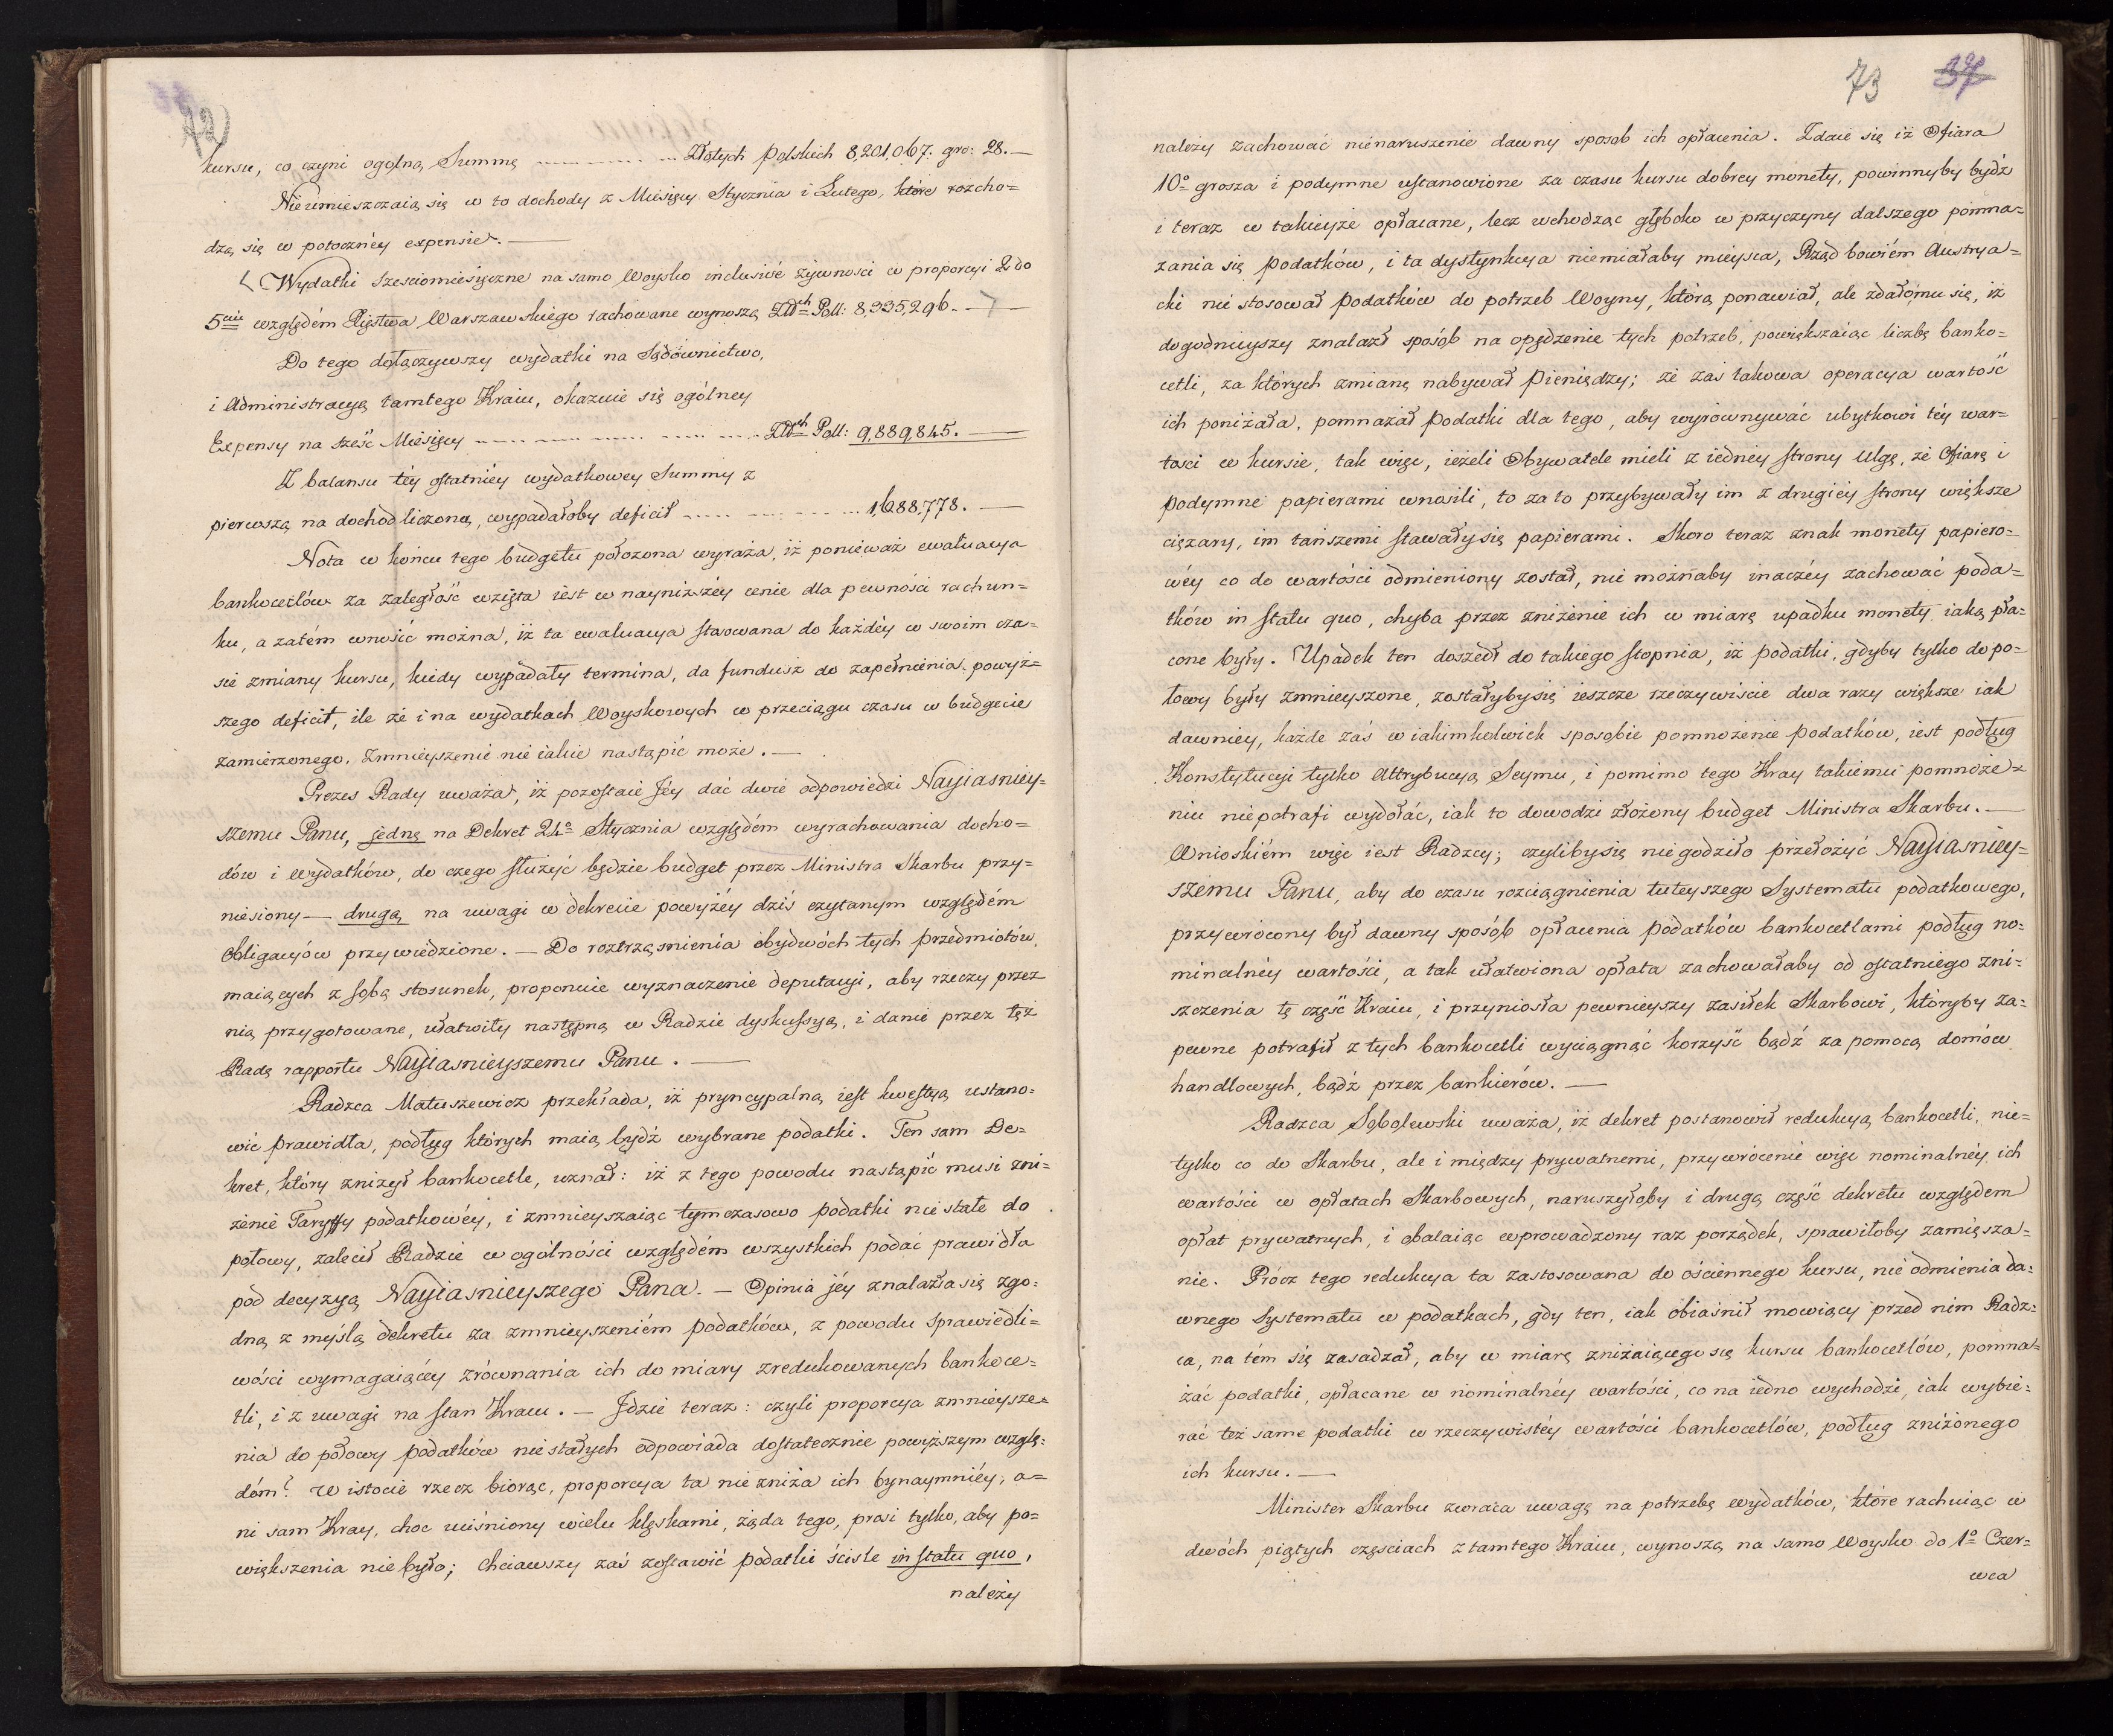 72
kursu, co czyni ogólną Summę ... Złotych Polskich 8,201,067. gro: 28. —
Nieumieszczaią się w to dochody z Miesięcy Stycznia i Lutego, które rozcho=
dzą się w potoczney expensie. —
Wydatki sześciomiesięczne na samo Woysko inclusivè żywnosci w proporcyi 2 do
5ciu względém Xięstwa Warszawskiego rachowane wynoszą Złłch Poll: 8,335,296. —
Do tego dołączywszy wydatki na Sądownictwo,
i Administracyą tamtego Kraiu, okazuie się ogólney
Expensy na sześć Miesięcy ... Złłch Poll: 9,889,845. —
Z balansu téy ostatniéy wydatkowey Summy z
pierwszą na dochód liczoną, wypadałoby deficit ... 1,688,778. —
Nota w końcu tego budgetu położona wyraża, iż ponieważ ewaluacya
bankocetlów za zaległość wzięta iest w nayniższéy cenie dla pewności rachun=
ku, a zatém wnosić można, iż ta ewaluacya stosowana do każdéy w swoim cza=
sie zmiany kursu, kiedy wypadały termina, da fundusz do zapełnienia powyż=
szego deficit, ile że i na wydatkach Woyskowych w przeciągu czasu w budgecie
zamierzonego, zmnieyszenie nieiakie nastąpić może. —
Prezes Rady uważa, iż pozostaie Jéy dać dwie odpowiedzi Nayiasniey=
szemu Panu, jedną na Dekret 24o Stycznia względém wyrachowania docho=
dów i wydatków, do czego służyć będzie budget przez Ministra Skarbu przy=
niesiony — drugą na uwagi w dekrecie powyżéy dziś czytanym względém
Obligacyów przywiedzione. — Do roztrząsnienia obydwóch tych przedmiotów,
maiących z sobą stosunek, proponuie wyznaczenie deputacyi, aby rzeczy przez
nią przygotowane, ułatwiły następną w Radzie dyskussyą, i danie przez tęż
Radę rapportu Nayiasnieyszemu Panu. —
Radzca Matuszewicz przekłada, iż pryncypalną iest kwestyą ustano=
wić prawidła, podług których maią bydź wybrane podatki. Ten sam De=
kret, który zniżył bankocetle, uznał: iż z tego powodu nastąpić musi zni=
żenie Taryffy podatkowéy, i zmnieyszaiąc tymczasowo podatki niestałe do
połowy, zalecił Radzie w ogólności względém wszystkich podać prawidła
pod decyzyą Nayiasnieyszego Pana. — Opinia jéy znalazła się zgo=
dną z myślą dekretu za zmnieyszeniém podatków, z powodu sprawiedli=
wości wymagaiącéy zrównania ich do miary zredukowanych bankoce=
tli, i z uwagi na stan Kraiu. — Jdzie teraz: czyli proporcya zmnieysze=
nia do połowy podatków niestałych odpowiada dostatecznie powyższym wzglę=
dóm? W istocie rzecz biorąc, proporcya ta nie zniża ich bynaymniéy, a=
ni sam Kray, choc uciśniony wielu klęskami, żąda tego, prosi tylko, aby po=
większenia nie było; chciawszy zaś zostawić podatki ściśle in statu quo,
należy
73 37
należy zachować nienaruszenie dawny sposób ich opłacenia. Zdaie się iż Ofiara
10o grosza i podymne ustanowione za czasu kursu dobrey monety, powinnyby bydź
i teraz w takieyże opłacane, lecz wchodząc głęboko w przyczyny dalszego pomna=
żania się podatków, i ta dystynkcya niemiałaby mieysca, Rząd bowiém Austrya=
cki nie stosował podatków do potrzeb Woyny, którą ponawiał, ale zdałomu się, iż
dogodnieyszy znalazł sposób na opędzenie tych potrzeb, powiększaiąc liczbę banko=
cetli, za których zmianę nabywał pieniędzy; że zaś takowa operacya wartość
ich poniżała, pomnażał podatki dla tego, aby wyrównywać ubytkowi téy war=
tosci w kursie, tak więc, ieżeli Obywatele mieli z iedney strony ulgę, że Ofiarę i
podymne papierami wnosili, to za to przybywały im z drugiey strony większe
ciężary, im tańszemi stawałysię papierami. Skoro teraz znak monety papiero=
wéy co do wartości odmieniony został, nie możnaby inaczéy zachować poda=
tków in statu quo, chyba przez zniżenie ich w miarę upadku monety iaką pła=
cone były. Upadek ten doszedł do takiego stopnia, iż podatki, gdyby tylko do po=
łowy były zmnieyszone, zostałybysię ieszcze rzeczywiscie dwa razy większe iak
dawniey, każde zaś w iakimkolwiek sposobie pomnożenie podatków, iest podług
Konstytucyi tylko Attrybucyą Seymu, i pomimo tego Kray takiemu pomnoże=
niu niepotrafi wydołać, iak to dowodzi złożony budget Ministra Skarbu. —
Wnioskiém więc iest Radzcy; czylibysię niegodziło przełożyć Nayiasniey=
szemu Panu, aby do czasu rozciągnienia tuteyszego Systematu podatkowego,
przywrócony był dawny sposób opłacenia podatków bankocetlami podług no=
minalnéy wartości, a tak ułatwiona opłata zachowałaby od ostatniego zni=
szczenia tę część Kraiu, i przyniosła pewnieyszy zasiłek Skarbowi, któryby za=
pewne potrafił z tych bankocetli wyciągnąć korzyść bądź za pomocą domów
handlowych, bądź przez bankierów. —
Radzca Sobolewski uważa, iż dekret postanowił redukcyą bankocetli, nie=
tylko co do Skarbu, ale i między prywatnemi, przywrócenie więc nominalnéy ich
wartości w opłatach Skarbowych, naruszyłoby i drugą część dekretu względem
opłat prywatnych, i obalaiąc wprowadzony raz porządek, sprawiłoby zamięsza=
nie. Prócz tego redukcya ta zastosowana do ościennego kursu, nie odmienia da=
wnego Systematu w podatkach, gdy ten, iak obiaśnił mowiący przed nim Radz=
ca, na tém się zasadzał, aby w miarę zniżaiącego się kursu bankocetlów, pomna=
żać podatki, opłacane w nominalnéy wartości, co na iedno wychodzi, iak wybie=
rać też same podatki w rzeczywistéy wartości bankocetlów, podług zniżonego
ich kursu. —
Minister Skarbu zwraca uwagę na potrzebę wydatków, które rachuiąc w
dwóch piątych częsciach z tamtego Kraiu, wynoszą na samo Woysko do 1o Czer=
wca